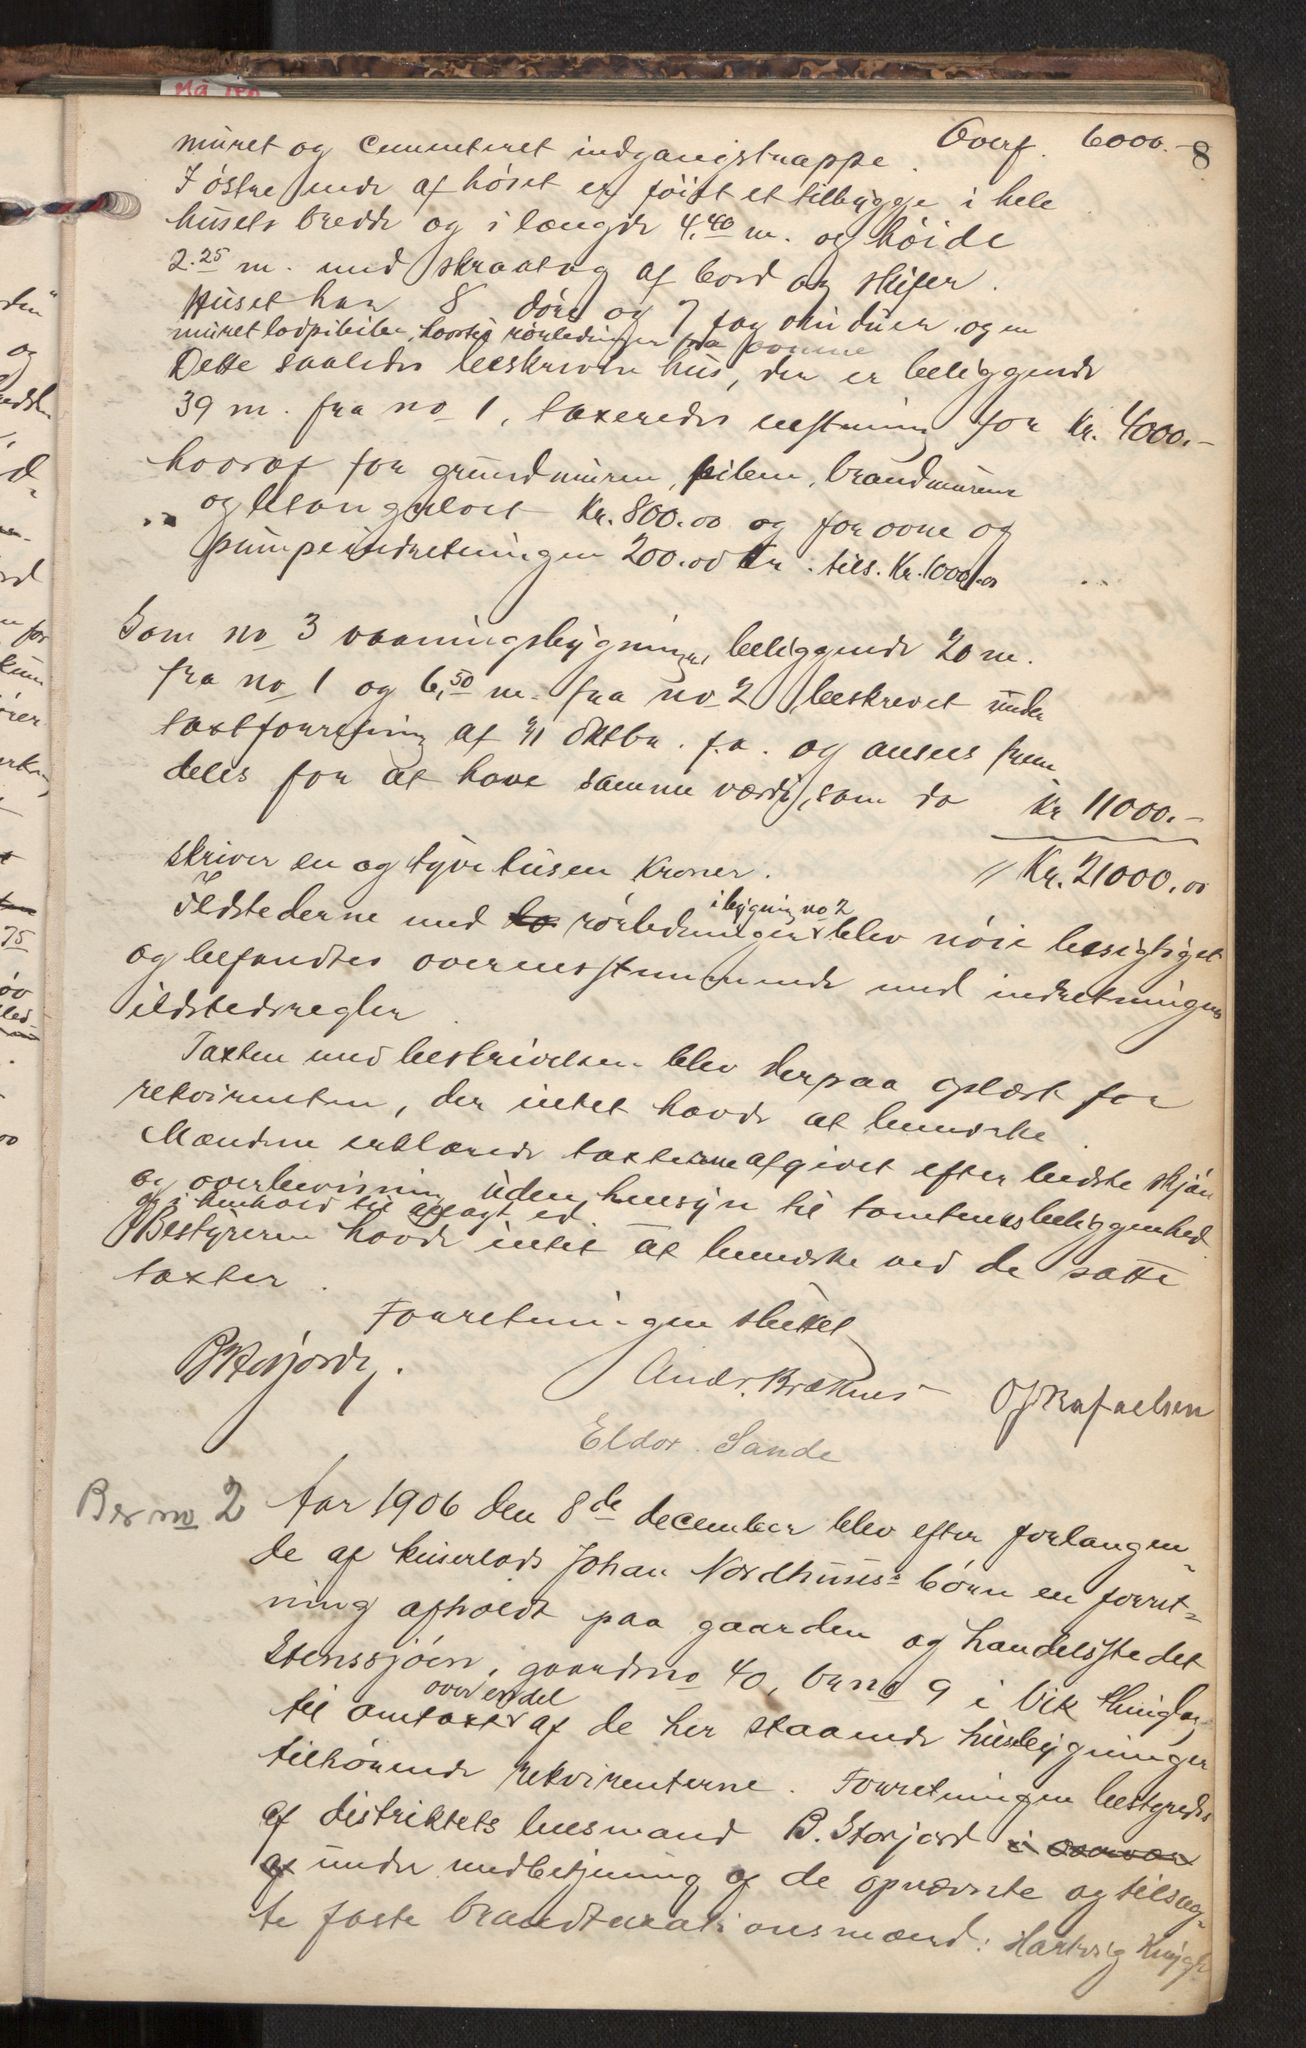 8
muret og cementeret indgangstrappe. Overf. 6000.-
I østre ende af høset er føiet et tilbygge i hele
husets bredde og i længde 4.40 m. og høide
2.25 m. med skraatag af bord og skifer.
Huset har 8 døre og 7 fag vinduer og en
muret lodpibe, rørledninger fra ovnene
Dette saaledes beskrevne hus, der er beliggende
39 m. fra no 1, taxeredes for Kr. 4000.-
hvoraf for grundmuren, piben, brandmurene
og Kr. 800.00 og for ovne og
pumpeindretningen 200.00 Kr. tils. Kr. 1000.00
Som no 3 vaaningsbygningen, beliggende 20 m.
fra no 1 og 6.50 m. fra no 2 beskrevet under
taxtforretning af 31 Oktbr. f.a. og ansees frem-
deles for at have samme værdi, som da Kr 11000.-
skriver en og tyve tusen Kroner. // Kr. 21000.00
Ildstederne med rørledninger i bygning no 2 blev nøie besigtiget
og befandtes overensstemmende med indretningens
ildstedsregler.
Taxten med beskrivelsen blev derpaa oplæst for
rekvirenten, der intet havde at bemerke.
Mændene erklærede taxterne afgivet efter bedste skjøn
og overbevisning uden hensyn til tomtens beliggenhed
og i henhold til aflagt ed.
Bestyreren havde intet at bemerke ved de satte
taxter.
Forretningen sluttet
B Storjord. Andr. Bræknes O J Rafaelsen
Eldor Sande
Br no 2 Aar 1906 den 8de december blev efter forlangen-
de af Johan Nordhuus's børn en forret-
ning afholdt paa gaarden og handelsstedet
Stenssjøen, gaardsno 40, brno 9 i Vik thinglag
til omtaxt over endel af de her staaende husbygninger
tilhørende rekvirenterne. Forretningen bestyredes
af distriktets lensmand B. Storjord
under medbetjening af de opnævnte og tilsag-
te faste brandtaxationsmænd: Hartvig